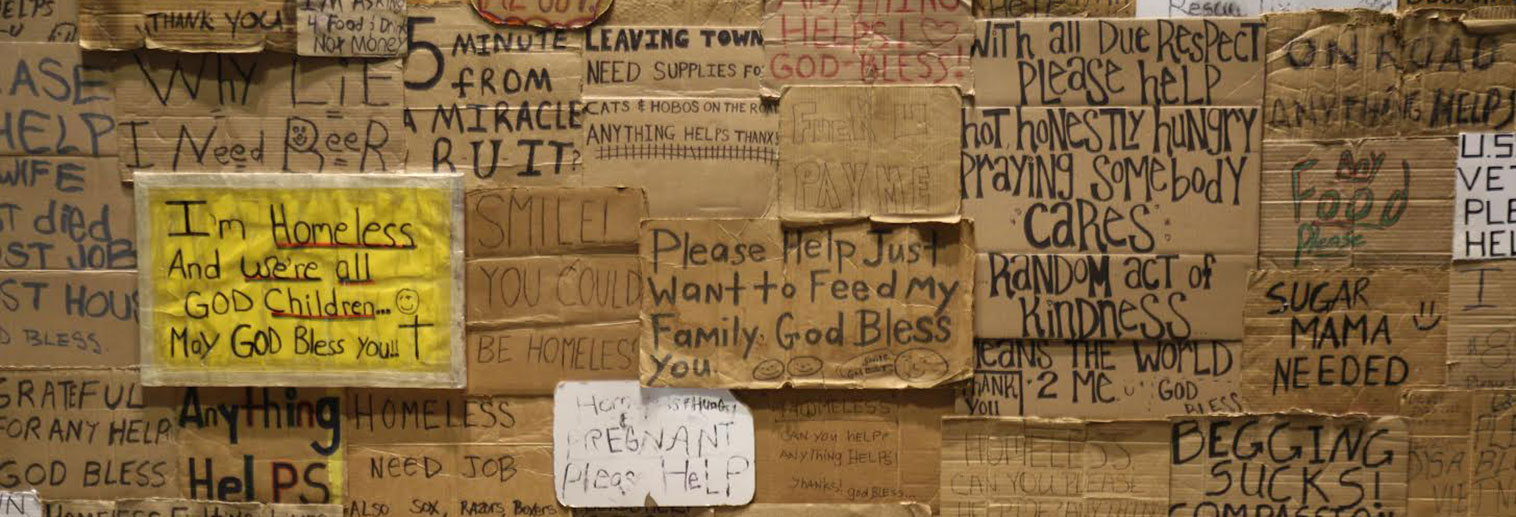 THANK YOU
4 Food
Not Money
WHY LiE
I Need BeeR
5 MINUTE
FROM
A MIRACLE
R U IT?
LEAVING TOWN
NEED SUPPLIES FO
CATS & HOBOS ON THE ROAD
ANYTHING HELPS THANX!
HELPS! ♡
GOD-BLESS!
PAY ME
With all Due Respect
please help
hot honestly hungry
praying somebody
cares
Random act of
kindness
means THE WORLD
THANK 2 ME
you GOD
BLESS
ON ROAD
ANYTHING HELPS
BUY
FOOD
Please
U.S
VET
PLE
HEL
ASE
HELP
WIFE
ST died
OST JOB
ST HOUS
D BLESS.
I'm Homeless
And we're all
GOD Children...
May GOD Bless you!!
SMILE!
YOU COULD
BE HOMELESS
Please Help Just
Want to Feed My
Family. God Bless
you
SUGAR
MAMA
NEEDED
GRATEFUL
FOR ANY HELP
GOD BLESS
Anything
HelPS
HOMELESS
NEED JOB
ALSO SOX, RAZORS, Boxers
Hungry
&
PREGNANT
Please HeLP
HOMELESS!
CAN YOU HELP?
ANYthing HELPS!
Thanks! god BLESS...
HOMELESS
CAN YOU PLEASE
BEGGING
SUCKS!